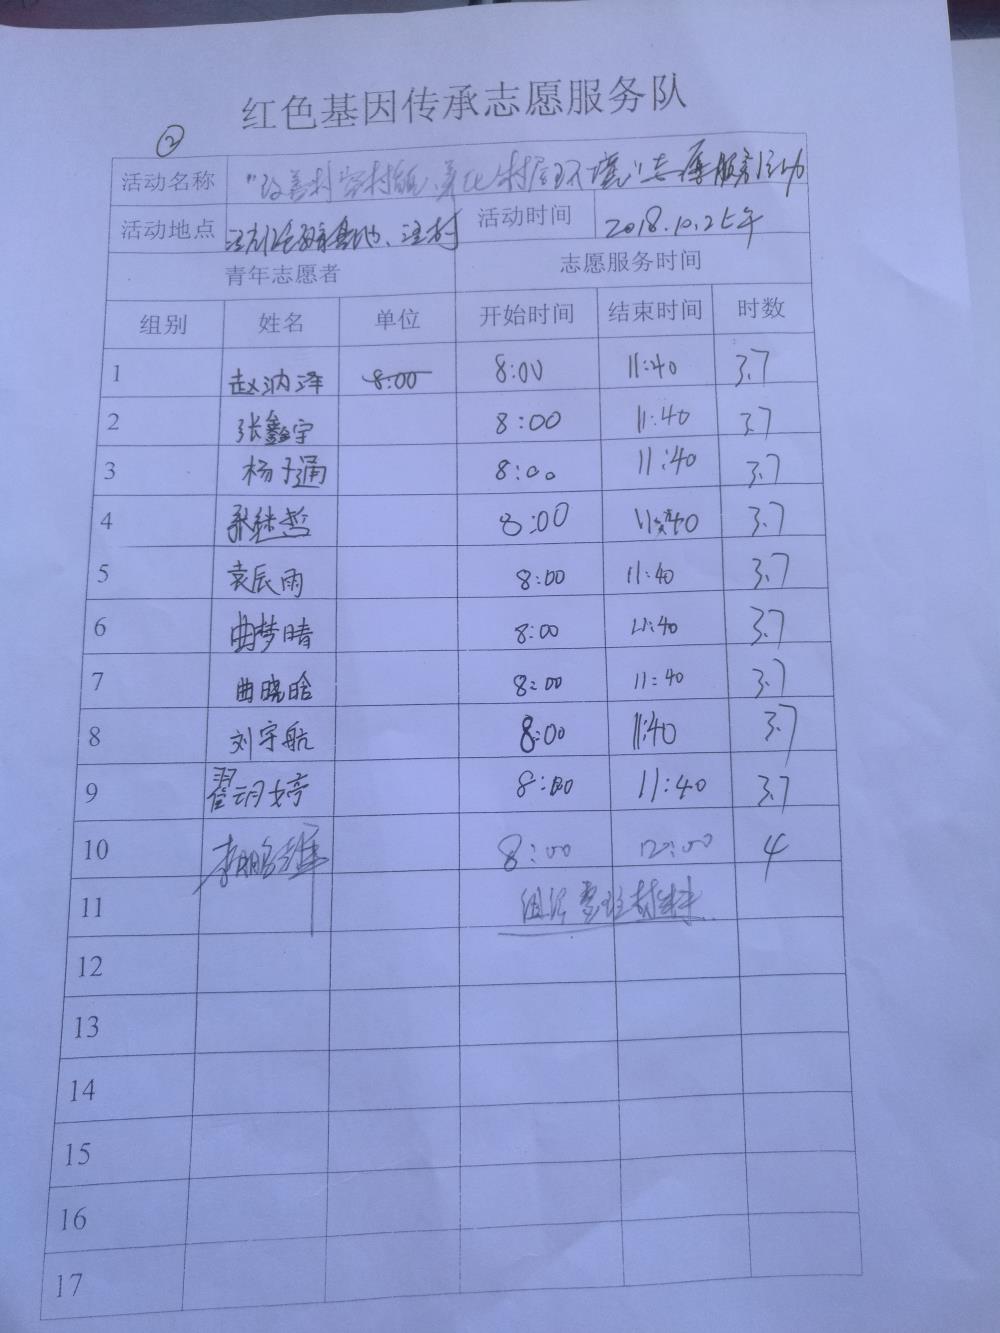 红色基因传承志愿服务队
②
活动名称 "改善村容村貌、美化村居环境"志愿服务活动
活动地点 教育基地、洼村 活动时间 2018.10.2上午
青年志愿者 志愿服务时间
组别 姓名 单位 开始时间 结束时间 时数
1 赵汭泽 8:00 8:00 11:40 3.7
2 张鑫宇 8:00 11:40 3.7
3 杨子涌 8:00 11:40 3.7
4 张继哲 8:00 11:40 3.7
5 袁辰雨 8:00 11:40 3.7
6 曲梦晴 8:00 11:40 3.7
7 曲晓晗 8:00 11:40 3.7
8 刘宇航 8:00 11:40 3.7
9 翟玥婷 8:00 11:40 3.7
10 李鹏 8:00 12:00 4
11 组织 整理材料
12
13
14
15
16
17